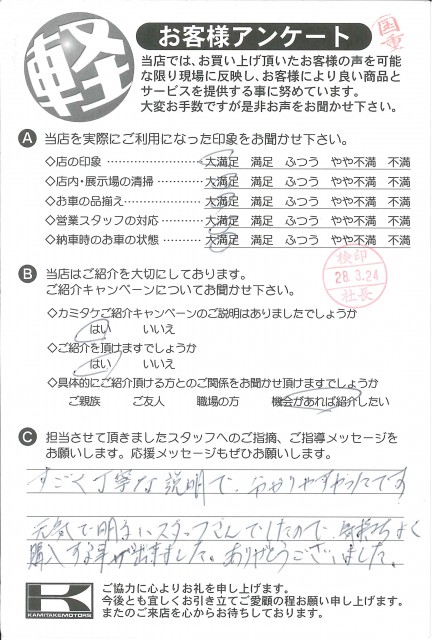 軽
お客様アンケート
国重
当店では、お買い上げ頂いたお客様の声を可能
な限り現場に反映し、お客様により良い商品と
サービスを提供する事に努めています。
大変お手数ですが是非お声をお聞かせ下さい。
A 当店を実際にご利用になった印象をお聞かせ下さい。
◇店の印象 ………………… 大満足 満足 ふつう やや不満 不満
◇店内・展示場の清掃 ………… 大満足 満足 ふつう やや不満 不満
◇お車の品揃え ……………… 大満足 満足 ふつう やや不満 不満
◇営業スタッフの対応 ………… 大満足 満足 ふつう やや不満 不満
◇納車時のお車の状態 ………… 大満足 満足 ふつう やや不満 不満
B 当店はご紹介を大切にしております。
ご紹介キャンペーンについてお聞かせ下さい。
検印
28.3.24
社長
◇カミタケご紹介キャンペーンのご説明はありましたでしょうか
はい いいえ
◇ご紹介を頂けますでしょうか
はい いいえ
◇具体的にご紹介頂ける方とのご関係をお聞かせ頂けますでしょうか
ご親族 ご友人 職場の方 機会があれば紹介したい
C 担当させて頂きましたスタッフへのご指摘、ご指導メッセージを
お願いします。応援メッセージもぜひお願いします。
すごく丁寧な説明で、やりやすかったです
元気で明るいスタッフさんでしたので、気持ちよく
購入する事が出来ました。ありがとうございました。
K
KAMITAKEMOTORS
ご協力に心よりお礼を申し上げます。
今後とも宜しくお引き立てご愛顧の程お願い申し上げます。
またのご来店を心からお待ちしております。